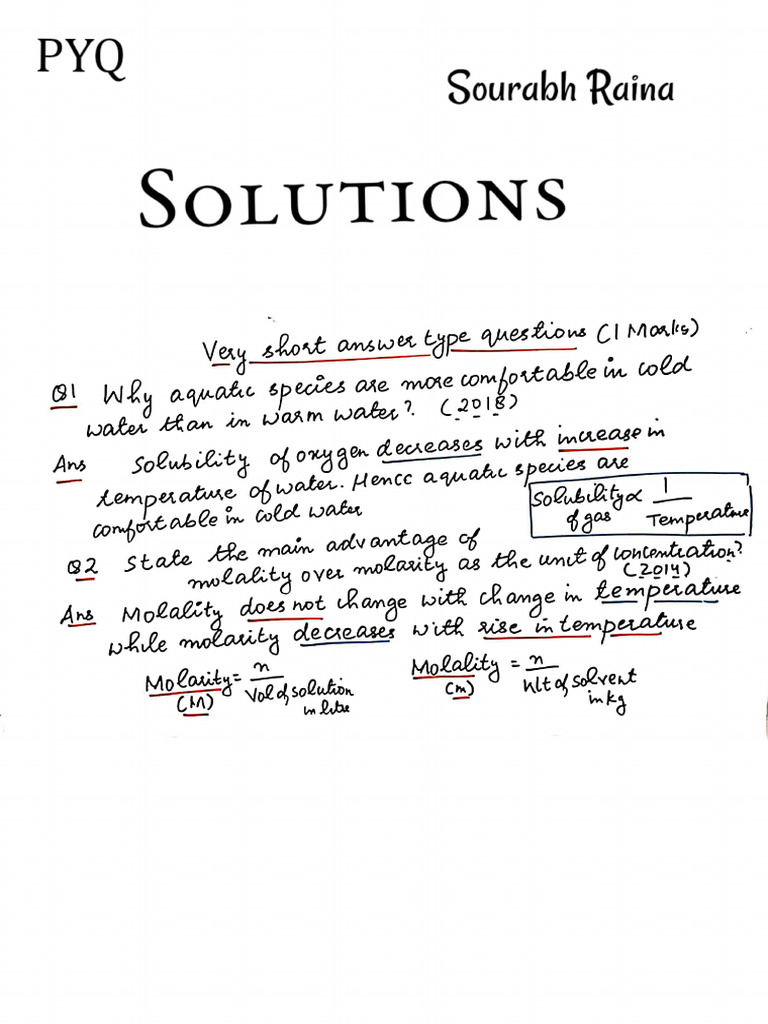 PYQ
Sourabh Raina
SOLUTIONS
Very short answer type questions (1 Marks)
Q1 Why aquatic species are more comfortable in cold
water than in warm water? (2018)
Ans Solubility of oxygen decreases with increase in
temperature of water. Hence aquatic species are
comfortable in cold water
Solubility ∝ 1
of gas Temperature
Q2 State the main advantage of
molality over molarity as the unit of concentration?
(2014)
Ans Molality does not change with change in temperature
while molarity decreases with rise in temperature
Molarity = n Molality = n
(M) Vol of solution (m) Wt of solvent
in litre in kg